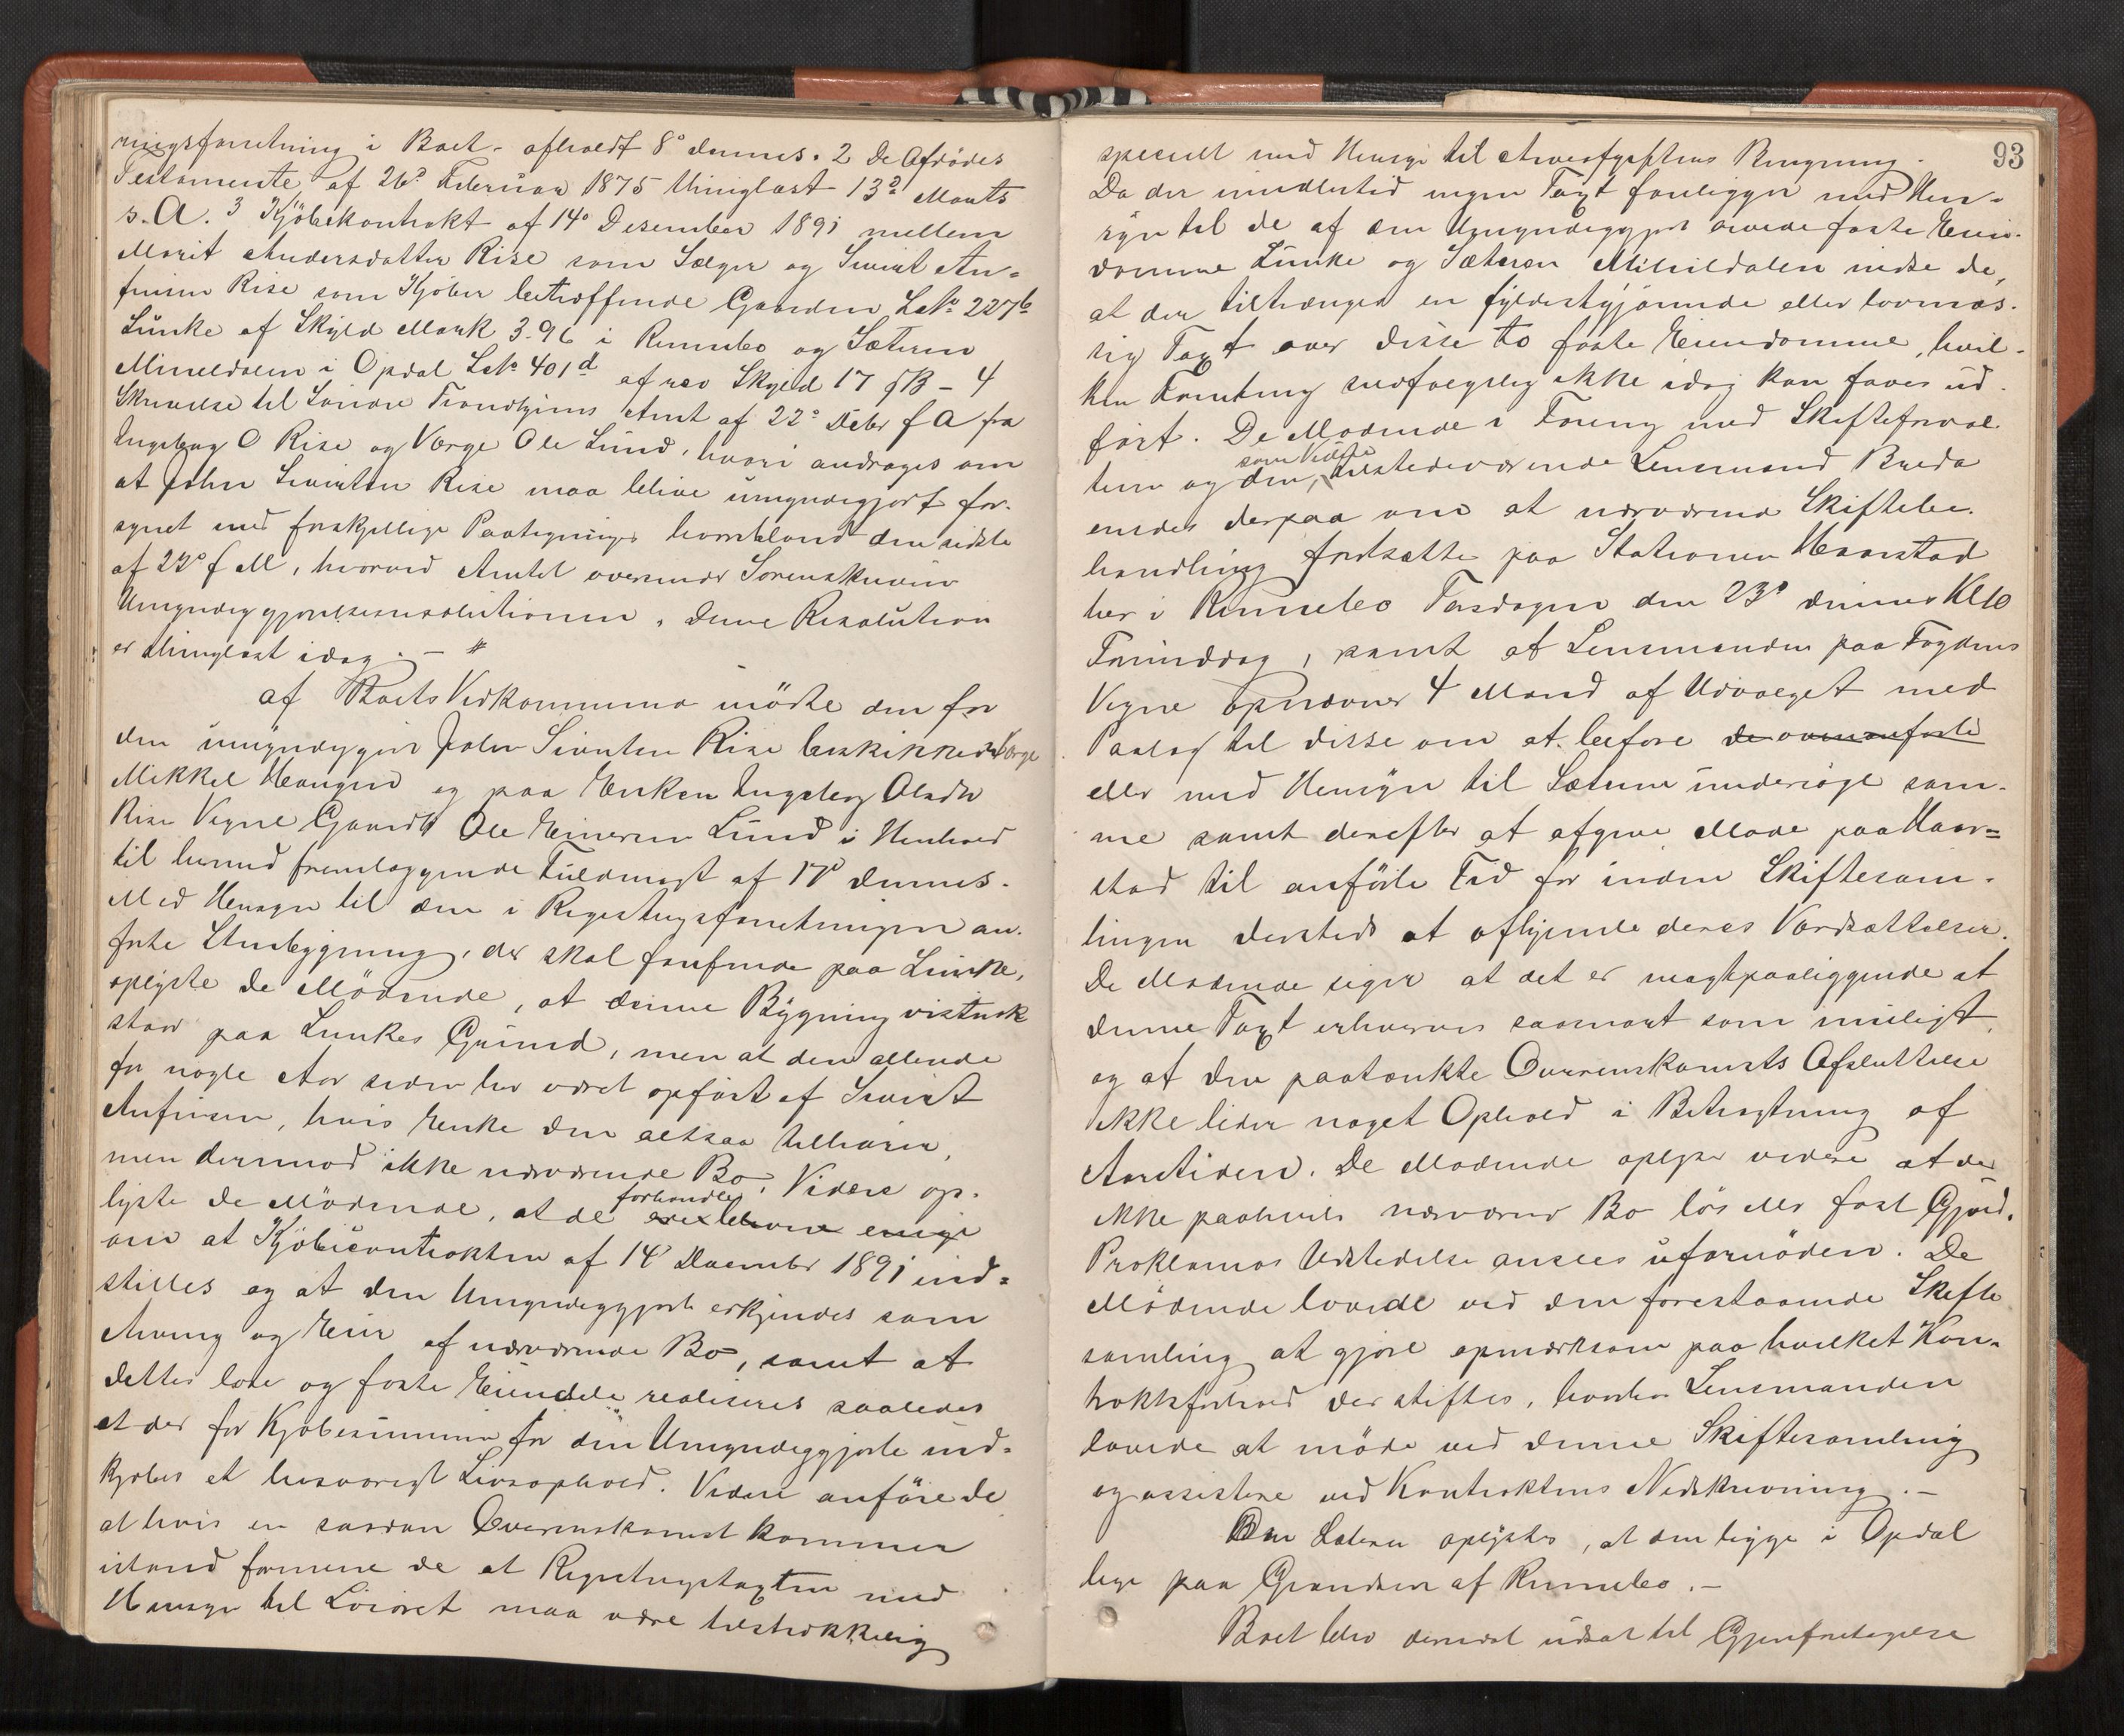 ringsforretning i Boet afholdt 8de dennes. 2 De Afdödes
Testamente af 26de Februar 1875 thinglæst 13de Marts
s. A. 3 Kjöbekontrakt af 14de Desember 1891 mellem
Marit Andersdatter Rise som Sælger og Sivert An-
finsen Rise som Kjøber betræffende Gaarden Lnr. 227b
Lunke af Skyld Mark 3.96 i Rennebo og Sæteren
Minildalen i Opdal Lnr. 401d af rev Skyld 17 ß - 4
Skrivelse til Söndre Trondhjems Amt af 22de Debr f A fra
Ingeborg O Rise og Værge Ole Lund, hvori andrages om
at John Sivertsen Rise maa blive umyndiggjort for-
synet med forskjellige Paategninger hvoriblandt den sidste
af 22de f M, hvorved Amtet oversender Sorenskriveren
Umyndiggjørelsesresolutionen. Denne Resolution
er thinglæst idag. —
af Boets Vedkommende mödte den for
den umyndiggjorte John Sivertsen Rise beskikkede Værge
Mikkel Haugen og paa Enken Ingeborg Olsdtr
Rise Vegne Gaardb Ole Einersen Lund i Henhold
til herved fremlæggende Fuldmagt af 17de dennes.
Med Hensyn til den i Registreringsforretningen an-
førte Stuebygning, der skal forefindes paa Lunke,
oplyste de Mödende, at denne Bygning vistnok
staar paa Lunkes Grund, men at den allerede
for nogle Aar siden har været opfört af Sivert
Anfinsen, hvis Enke den altsaa tilhörer,
men derimod ikke nærværende Bo. Videre op-
lyste de Mödende, at de forhandler ere blevne enige
om at Kjöbecontrakten af 14de December 1891 ind-
stilles og at den Umyndiggjorte erkjendes som
Arving og Eier af nærværende Bo, samt at
dettes løse og faste Eiendele realiseres saaledes
at der for Kjøbesummen for den Umyndiggjorte ind-
kjøbes et livsvarigt Livsophold. Videre anføre de
at hvis en saadan Overenskomst kommer
istand formene de at Registreringstaxten med
Hensyn til Løsöret maa være tilstrækkelig
93
specielt med Hensyn til Arveafgiftens Beregning.
Da der imidlertid ingen Taxt foreligger med Hen-
syn til de af den Umyndiggjorte arvede faste Eien-
domme Lunke og Sæteren Minildalen indse de,
at der tiltrænges en fyldestgjørende eller lovmæs-
sig Taxt over disse to faste Eiendomme, hvil-
ken Forretning selvfølgelig ikke idag kan faaes ud-
fört. De Mødende i Forening med Skifteforval-
teren og den som Vidne tilstedeværende Lensmand Breda
enedes derpaa om at nærværende Skiftebe-
handling fortsættes paa Stationen Haarstad
her i Rennebo Torsdagen den 23de dennes Kl 10
Formiddag, samt at Lensmanden paa Fogdens
Vegne opnævner 4 Mænd af Udvalget med
Paalæg til disse om at befare de ovenanførte
eller med Hensyn til Sæteren undersöge sam-
me samt derefter at afgive Møde paa Haar-
stad til anförte Tid for inden Skiftesam-
lingen dersteds at afhjemle deres Værdsættelser.
De Mødende siger at det er magtpaaliggende at
denne Taxt erhverves saasnart som muligt,
og at den paatænkte Overenskomsts Afsluttelse
ikke lider noget Ophold i Betragtning af
Aarstiden. De Mødende oplyser videre at der
ikke paahviler nærværende Bo lös eller fast Gjæld.
Proklamas Udstedelse ansees ufornöden. De
Mödende lovede ved den forestaaende Skifte
samling at gjøre opmærksom paa hvilket Kon-
traktsforhold der stiftes, hvorhos Lensmanden
lovede at møde ved denne Skiftesamling
og assistere ved Kontraktens Nedskrivning. —
Om Sæteren oplystes, at den ligger i Opdal
lige paa Grændsen af Rennebo. —
Boet blev dernæst udsat til Gjenforetagelse